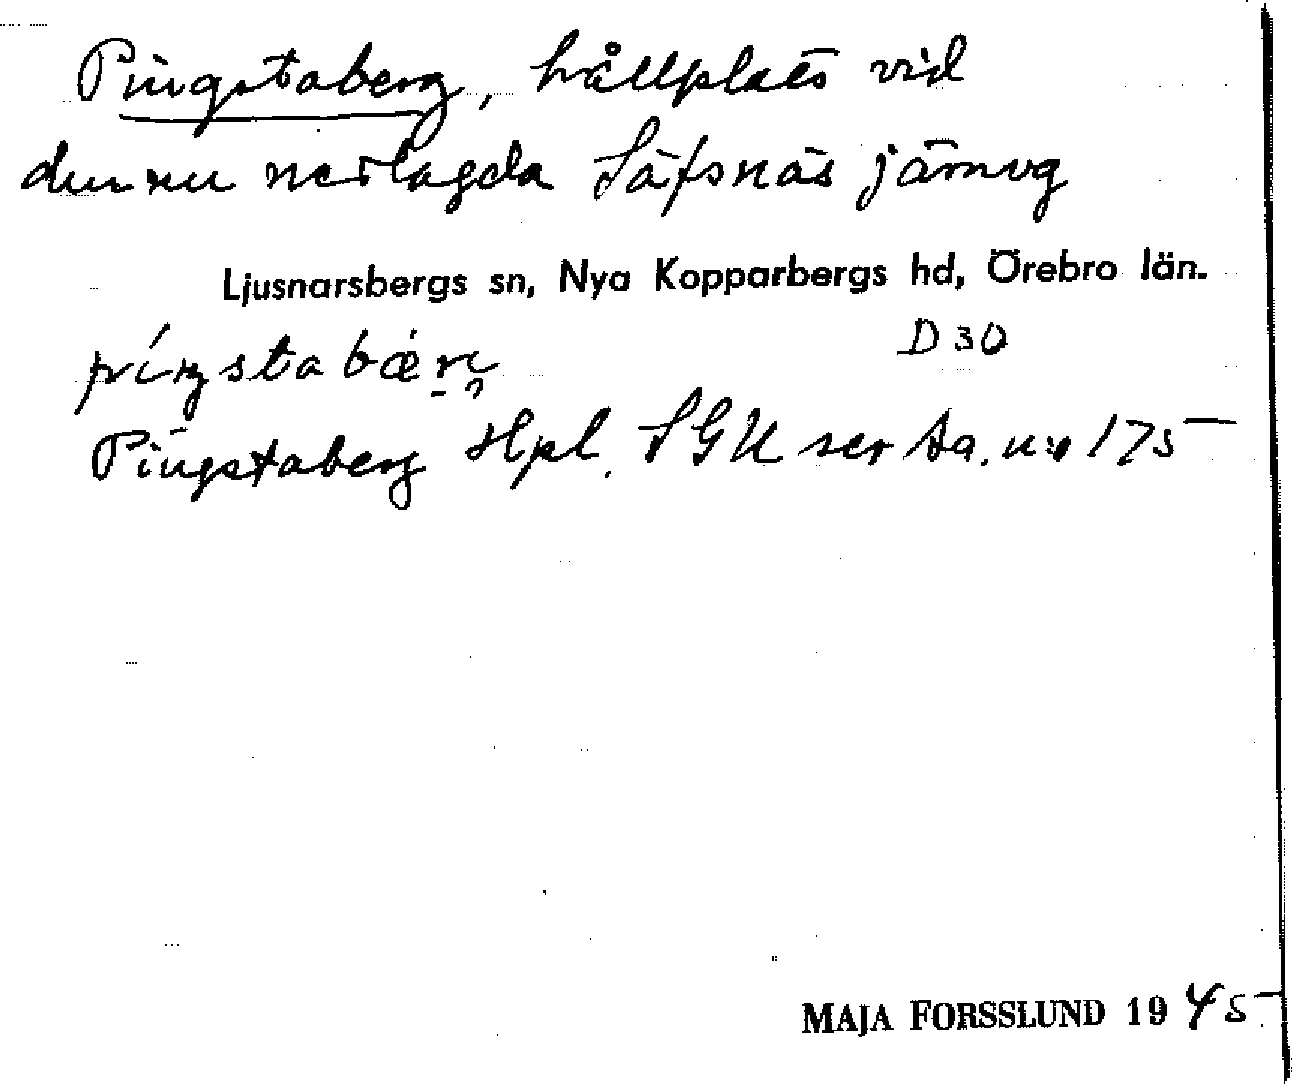 Pingstaberg, hållplats vid
den nu nerlagda Säfsnäs järnvg
Ljusnarsbergs sn, Nya Kopparbergs hd, Örebro län.
D 30
píŋstabæ̀rj
Pingstaberg Hpl. SGU ser Aa. n:o 175
MAJA FORSSLUND 1945